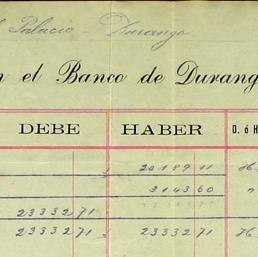 Palacio - Durango
en el Banco de Durang
DEBE HABER D. ó H
20189 11 H
3143 60 "
23332 71
23332 71 23332 71 H